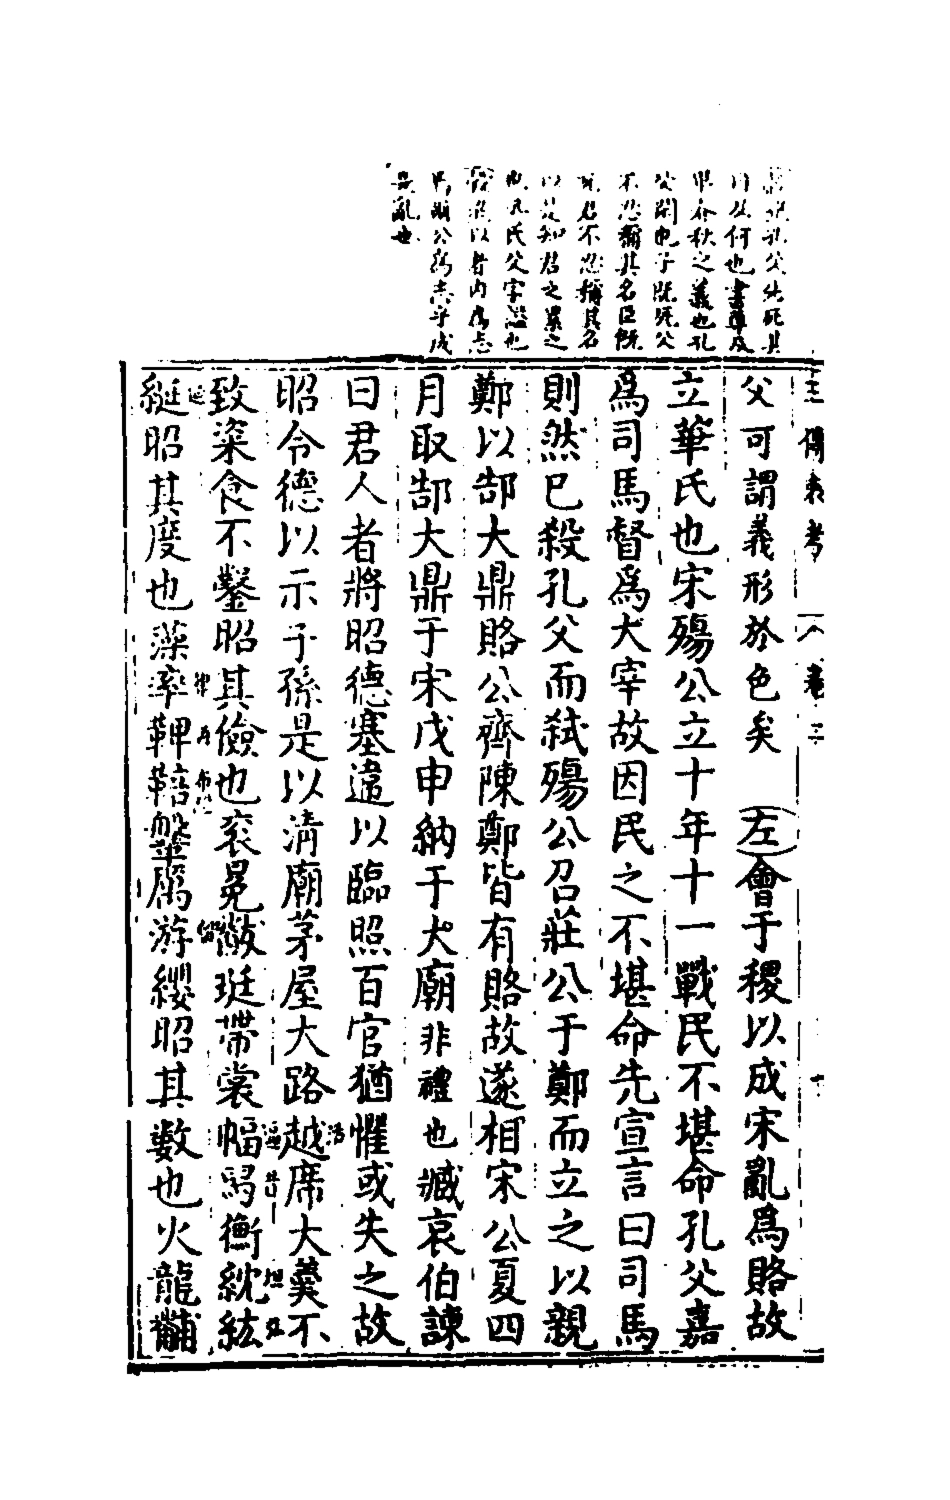 孔父先死其
曰及何也書尊及
卑春秋之義也孔
父閑也子既死父
不忍稱其名臣既
死君不忍稱其名
以是知君之累之
也孔氏父字謚也
以者內爲志
焉爾公爲志乎成
是亂也
三傳 考 八 卷三
父可謂義形於色矣 左會于稷以成宋亂爲賂故
立華氏也宋殤公立十年十一戰民不堪命孔父嘉
爲司馬督爲大宰故因民之不堪命先宣言曰司馬
則然已殺孔父而弒殤公召莊公于鄭而立之以親
鄭以郜大鼎賂公齊陳鄭皆有賂故遂相宋公夏四
月取郜大鼎于宋戊申納于大廟非禮也臧哀伯諫
曰君人者將昭德塞違以臨照百官猶懼或失之故
昭令德以示子孫是以清廟茅屋大路越活席大羹不
致粢食不鑿昭其儉也袞冕黻珽帶裳幅舄衡紞紘
綖昭其度也藻率鞞鞛鞶厲游纓昭其數也火龍黼